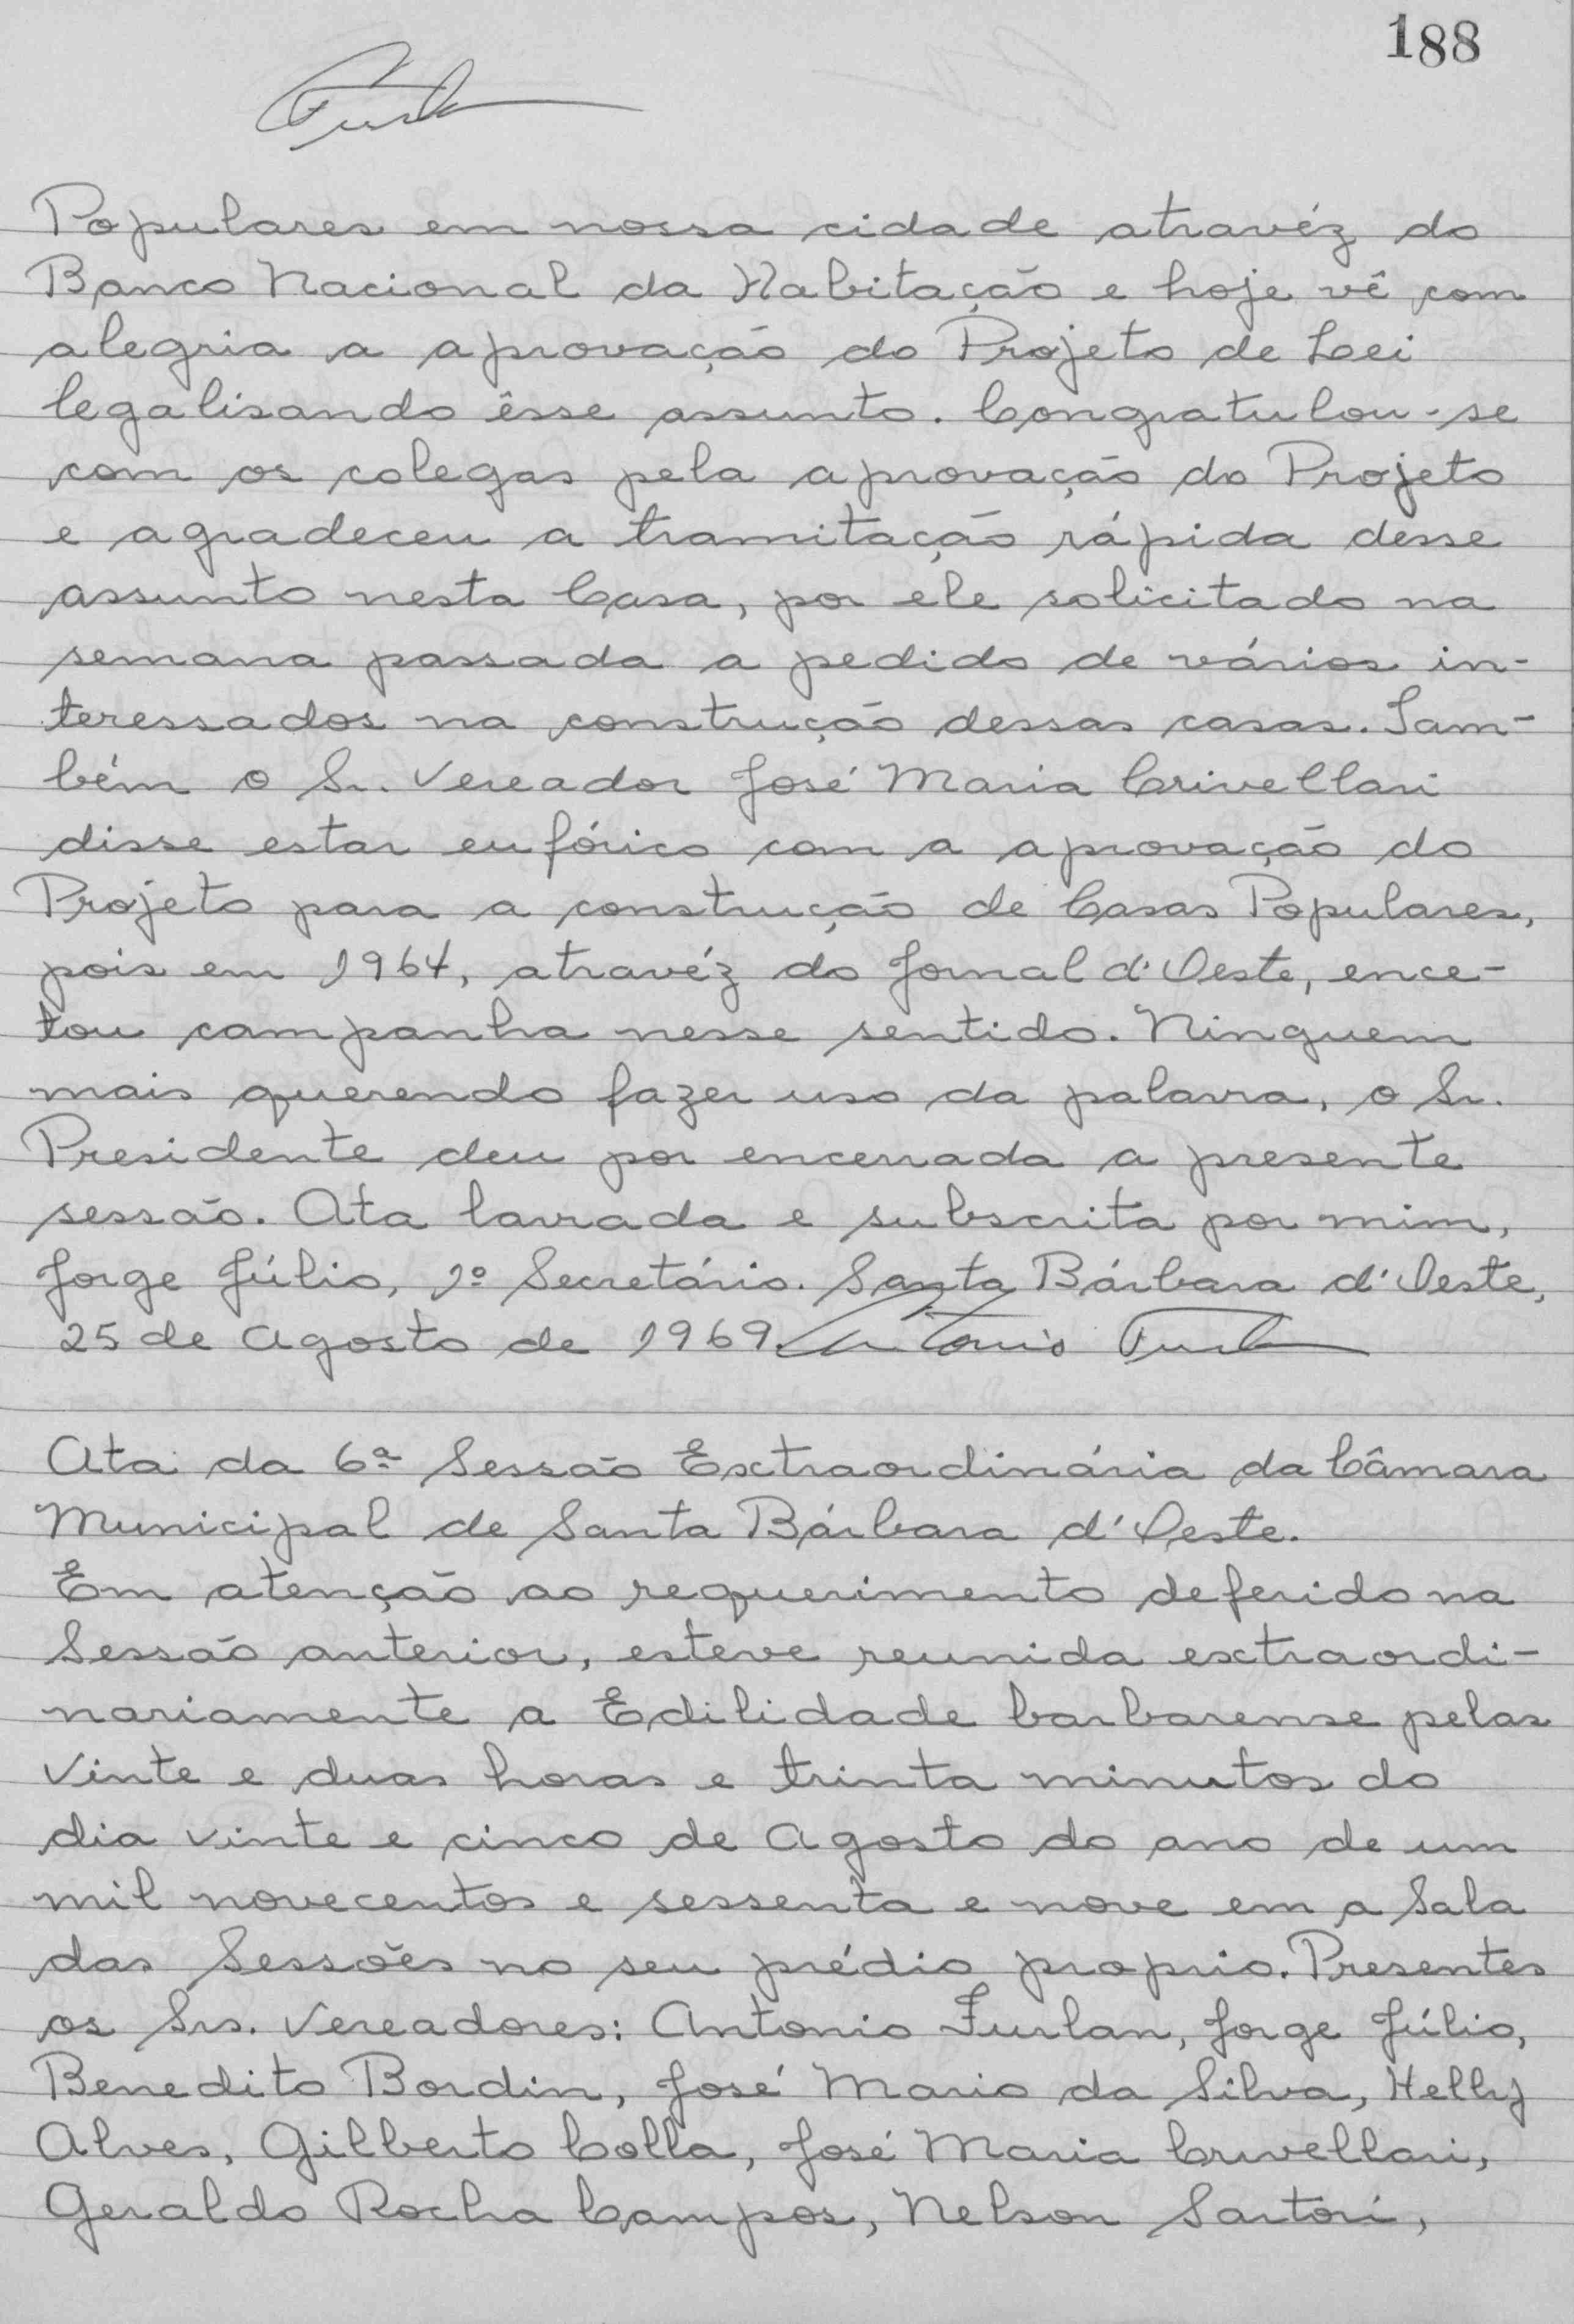 188
Populares em nossa cidade atravéz do
Banco Nacional da Habitação e hoje vê com
alegria a aprovação do Projeto de Lei
legalisando êsse assunto. Congratulou-se
com os colegas pela aprovação do Projeto
e agradeceu a tramitação rápida desse
assunto nesta Casa, por ele solicitado na
semana passada a pedido de vários in-
teressados na construção dessas casas. Tam-
bém o Sr. Vereador José Maria Crivellari
disse estar eufórico com a aprovação do
Projeto para a construção de Casas Populares,
pois em 1964, atravéz do Jornal d'Oeste, ence-
tou campanha nesse sentido. Ninguem
mais querendo fazer uso da palavra, o Sr.
Presidente deu por encerrada a presente
sessão. Ata lavrada e subscrita por mim,
Jorge Júlio, 1º Secretário. Santa Bárbara d'Oeste,
25 de Agosto de 1969. Antonio Furlan
Ata da 6ª Sessão Extraordinária da Câmara
Municipal de Santa Bárbara d'Oeste.
Em atenção ao requerimento deferido na
Sessão anterior, esteve reunida extraordi-
nariamente a Edilidade barbarense pelas
vinte e duas horas e trinta minutos do
dia vinte e cinco de Agosto do ano de um
mil novecentos e sessenta e nove em a Sala
das Sessões no seu prédio proprio. Presentes
os Srs. Vereadores: Antonio Furlan, Jorge Júlio,
Benedito Bordin, José Mario da Silva, Helly
Alves, Gilberto Colla, José Maria Crivellari,
Geraldo Rocha Campos, Nelson Sartori,